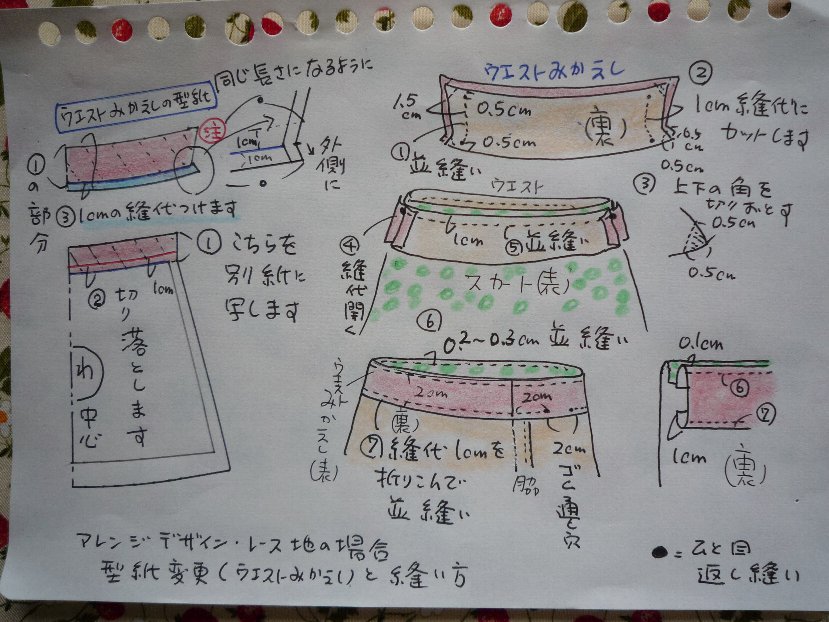 ウエストみかえしの型紙
同じ長さになるように
注
1cm
1cm
外側に
①の部分
③1cmの縫代つけます
① こちらを
別紙に
写します
② 切り落とします
1cm
わ
中心
ウエストみかえし
1.5cm
0.5cm
0.5cm
(裏)
①並縫い
②
1cm縫代に
カットします
0.5cm
③ 上下の角を
切りおとす
0.5cm
0.5cm
ウエスト
1cm
⑤並縫い
④縫代開く
スカート(表)
⑥
0.2~0.3cm 並縫い
ウエストみかえし(表)
2cm
2cm
(裏)
⑦縫代1cmを
折りこんで
並縫い
脇
2cmゴム通し穴
0.1cm
⑥
⑦
1cm
(裏)
アレンジデザイン・レース地の場合
型紙変更(ウエストみかえし)と縫い方
●=ひと目
返し縫い